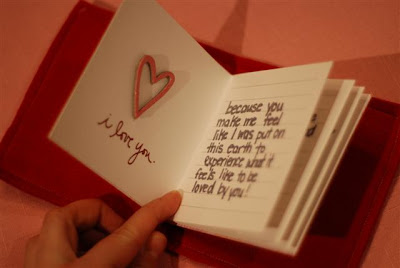 i love you.
because you
make me feel
like I was put on
this earth to
experience what it
feels like to be
loved by you!